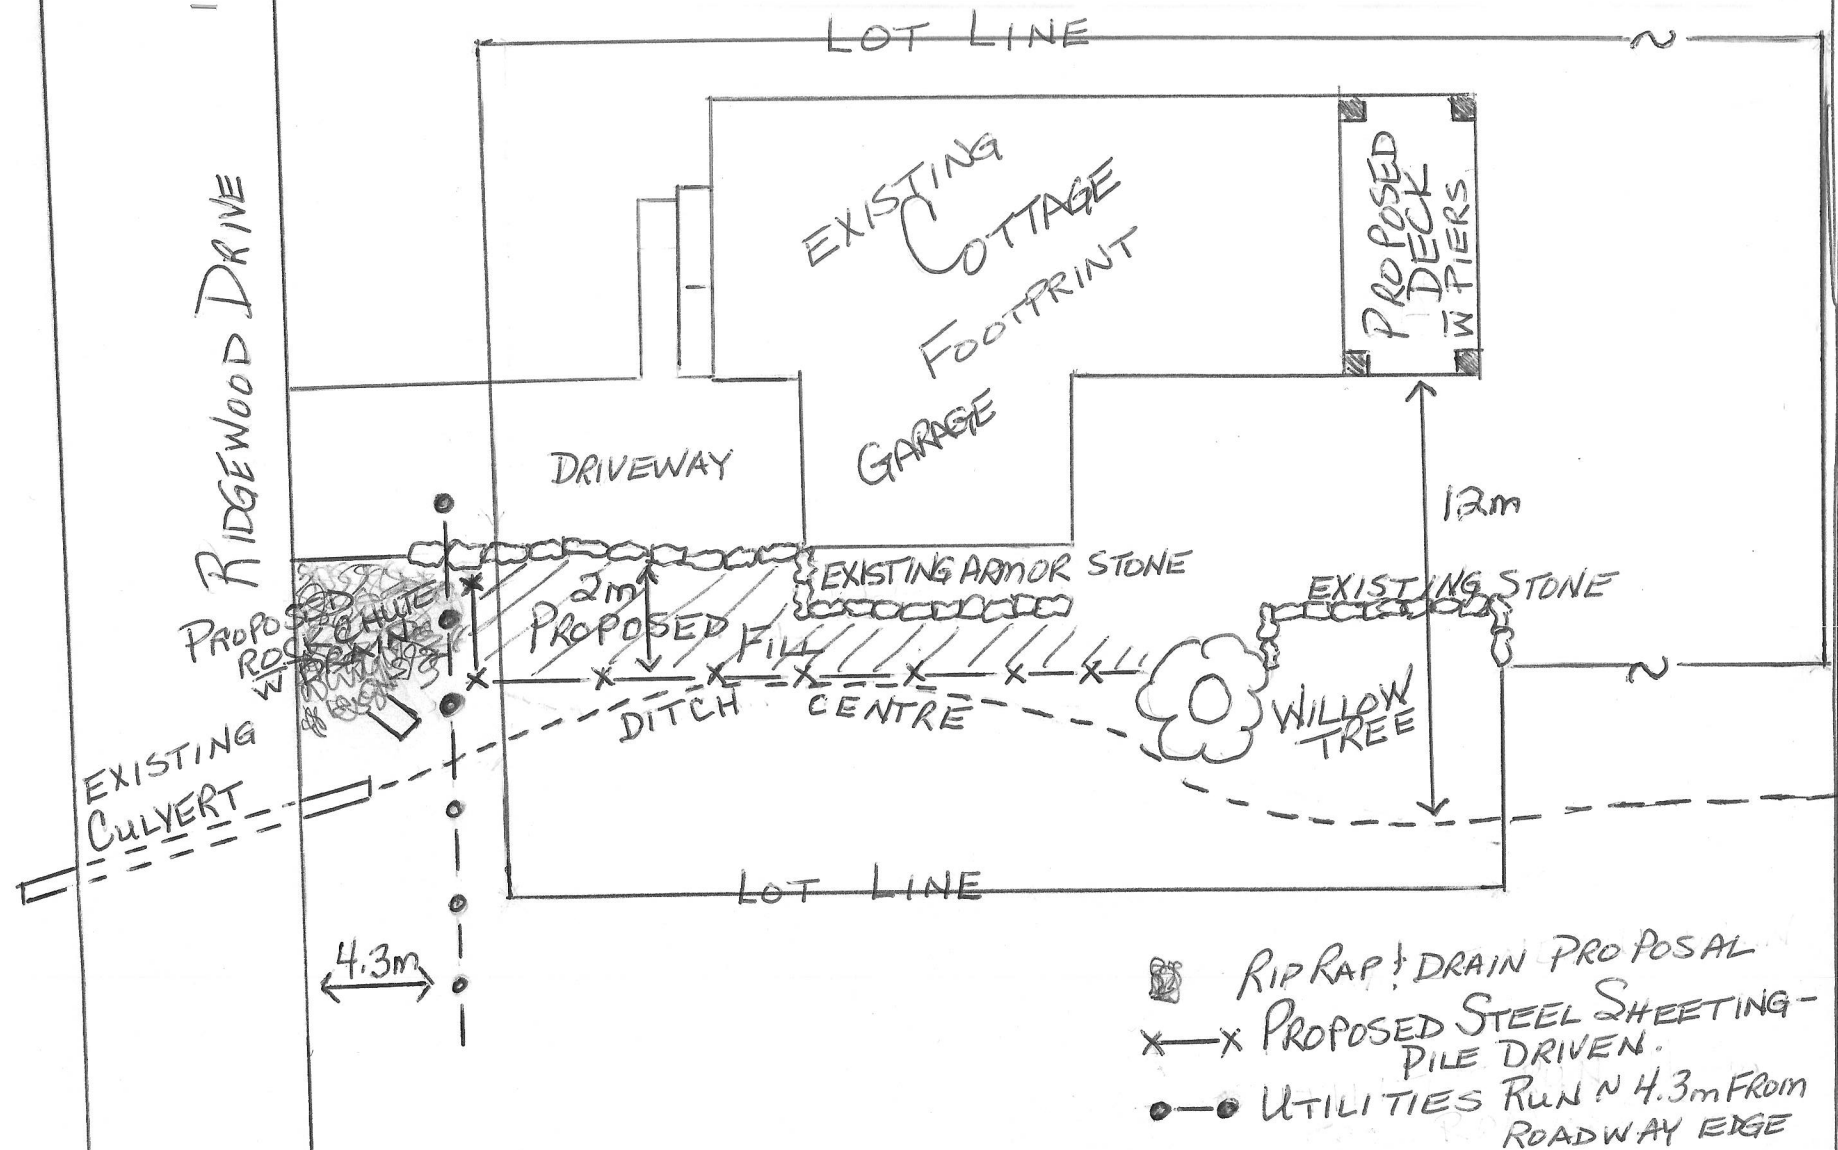 LOT LINE
RIDGEWOOD DRIVE
EXISTING
COTTAGE
FOOTPRINT
GARAGE
PROPOSED
DECK
W PIERS
DRIVEWAY
12m
EXISTING ARMOR STONE
EXISTING STONE
2m
PROPOSED
FILL
PROPOSED
ROCK CHUTE
W DRAIN
DITCH CENTRE
WILLOW
TREE
EXISTING
CULVERT
LOT LINE
4.3m
RIPRAP & DRAIN PROPOSAL
X—X PROPOSED STEEL SHEETING-
PILE DRIVEN.
UTILITIES RUN ~ 4.3m FROM
ROADWAY EDGE